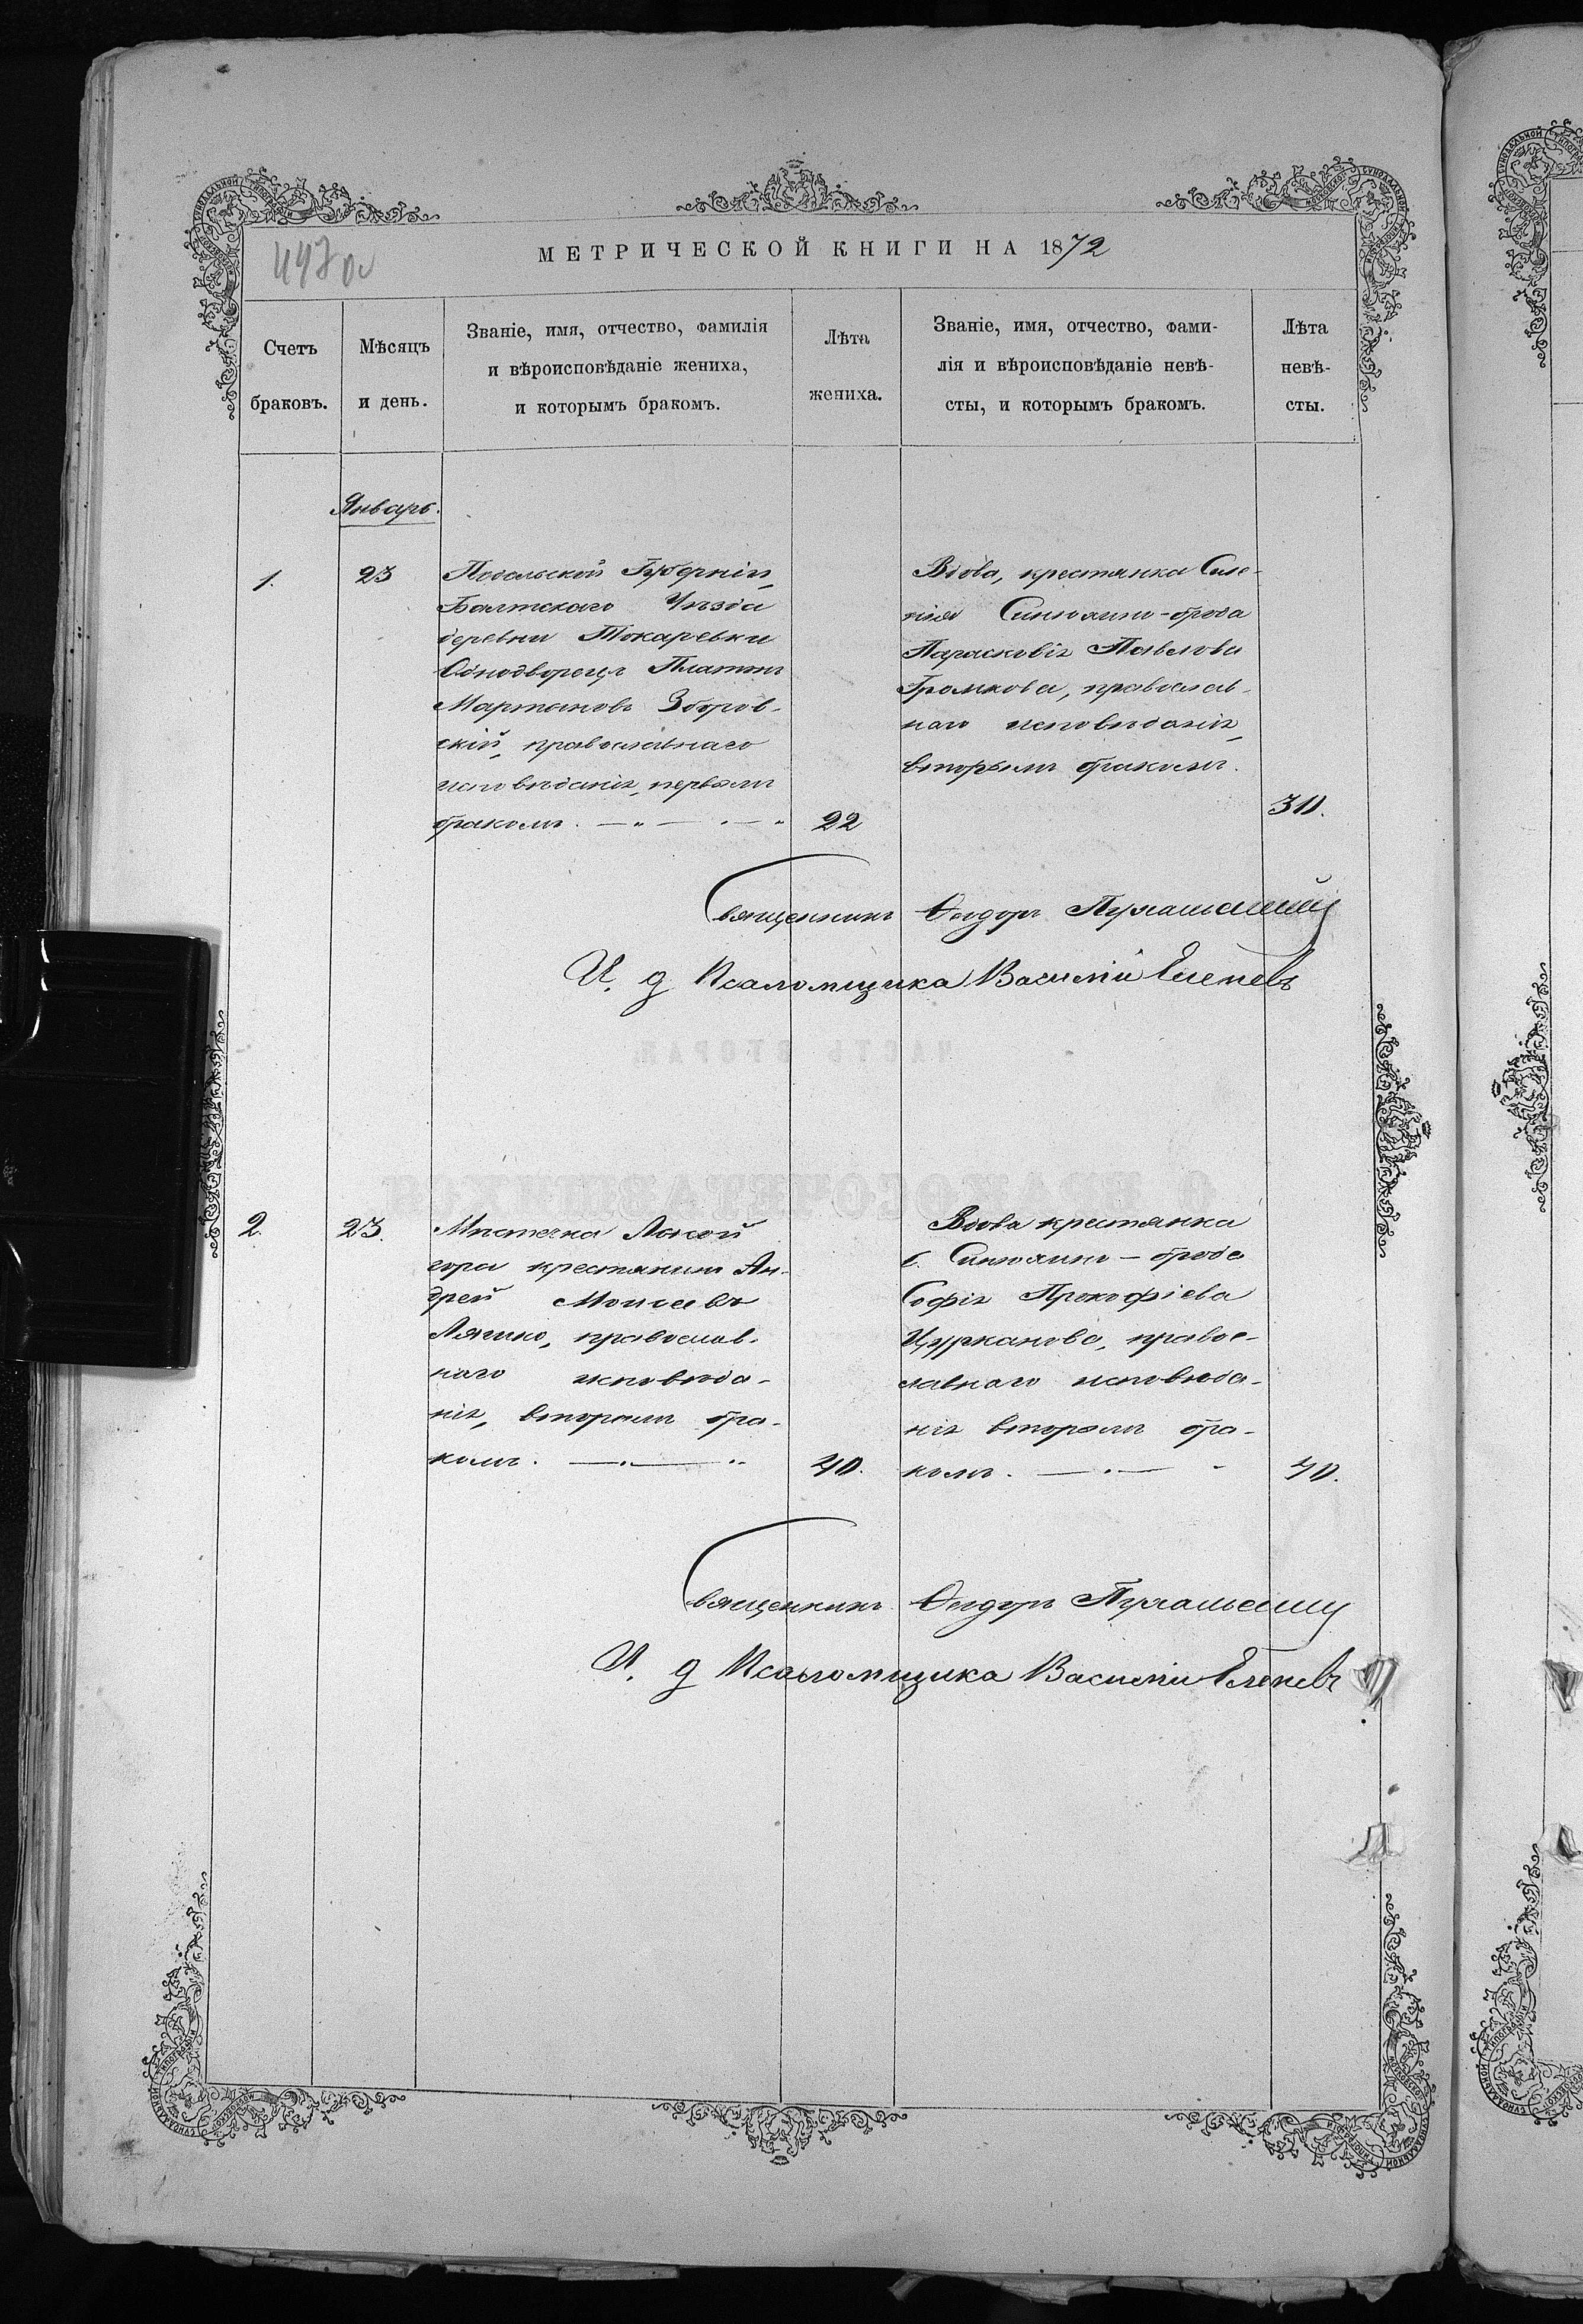 МЕТРИЧЕСКОЙ КНИГИ НА 1872
Счетъ браковъ.
Мѣсяцъ и день.
Званіе, имя, отчество, фамилія
и вѣроисповѣданіе жениха,
и которымъ бракомъ.
Лѣта жениха.
Званіе, имя, отчество, фами-
лія и вѣроисповѣданіе невѣ-
сты, и которымъ бракомъ.
Лѣта невѣ-
сты.
Январь.
1.
23
Подольской Губерніи,
Балтскаго Уѣзда
деревни Токаревки
Однодворецъ Платонъ
Мартановъ Зборов-
скій, православнаго
исповѣданія, первымъ
бракомъ.
22
Вдова, крестьянка Селе-
нія Синюхинъ-брода
Параскевія Павлова
Громкова, православ-
наго исповѣданія,
вторымъ бракомъ.
30.
Священникъ Ѳеодоръ
И. д Псаломщика Василій
2.
23.
Мѣстечка Лысой
гора крестьянинъ Ан-
дрей Моисеевъ
Ляшко, православ-
наго исповѣда-
нія, вторымъ бра-
комъ.
40.
Вдова крестьянка
с. Синюхинъ-брода
Софія Прокофіева
Цурканова, право-
славнаго исповѣда-
нія вторымъ бра-
комъ.
40.
Священникъ Ѳеодоръ
И. д Псаломщика Василій